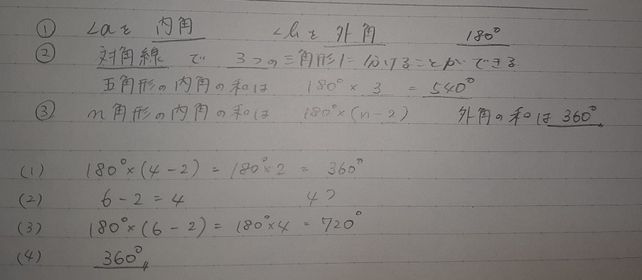 ① ∠aを 内角 ∠bを 外角 180°
② 対角線 で 3つの三角形に分けることができる
五角形の内角の和は 180°×3 = 540°
③ n角形の内角の和は 180°×(n-2) 外角の和は 360°〃
(1) 180°×(4-2) = 180°×2 = 360°
(2) 6-2=4 4つ
(3) 180°×(6-2) = 180°×4 = 720°
(4) 360°〃